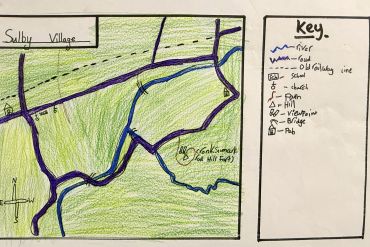 Sulby Village
Key.
river
road
Old railway line
school
church
Hill
Viewpoint
Bridge
Pub
cronk sumark
(Hill Fort)
W